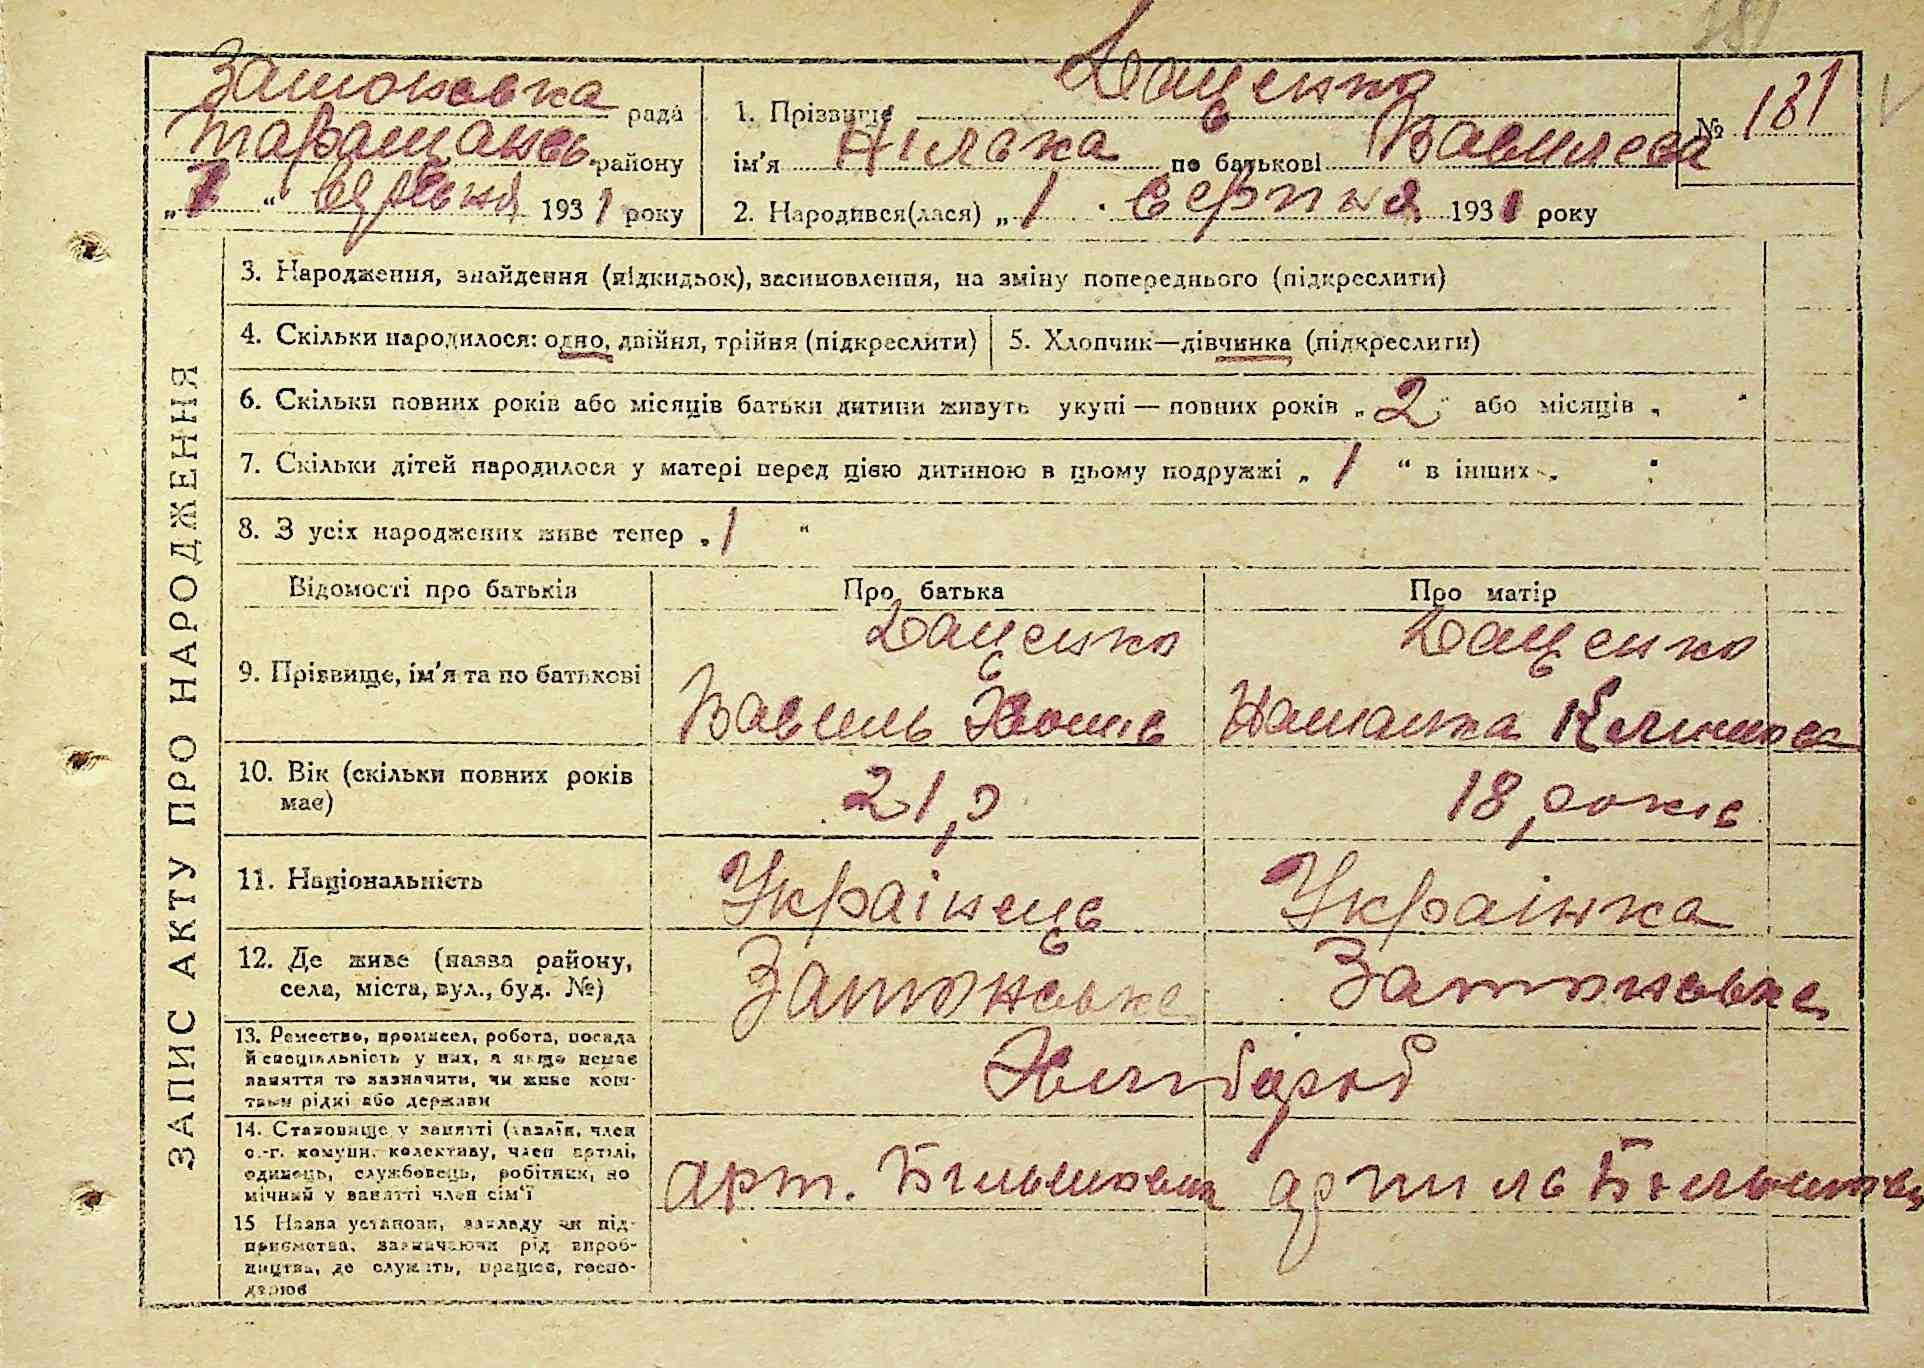 181
Затонська рада
Таращансь. району
„1“ серпня 1931 року
1. Прізвище Даценко
ім'я Нілька по батькові Вавилева
№ 181
2. Народився(лася) „1 серпня 1931 року
ЗАПИС АКТУ ПРО НАРОДЖЕННЯ
3. Народження, знайдення (підкидьок), засиновлення, на зміну попереднього (підкреслити)
4. Скільки народилося: одно, двійня, трійня (підкреслити)
5. Хлопчик—дівчинка (підкреслити)
6. Скільки повних років або місяців батьки дитини живуть укупі — повних років „2“ або місяців „ “
7. Скільки дітей народилося у матері перед цією дитиною в цьому подружжі „1“ в інших „ “
8. З усіх народжених живе тепер „1“
Відомості про батьків Про батька Про матір
9. Прізвище, ім'я та по батькові
Даценко
Вавиль
Даценко
Наталка
10. Вік (скільки повних років має)
21, р
18, років
11. Національність
Українець
Українка
12. Де живе (назва району, села, міста, вул., буд. №)
Затонське
Затонське
13. Ремество, промисел, робота, посада
й спеціяльність у них, а якщо немає
заняття то зазначити, чи живе кош-
твом рідні або держави
Хлібороб
14. Становище у занятті (хазяїн, член
с.-г. комуни, колективу, член артілі,
одинець, службовець, робітник, по
мічний у занятті член сім'ї
арт. Більшовик
артиль Більшовик
15 Назва установи, закладу чи під-
приємства, зазначаючи рід вироб-
ництва, де служить, працює, госпо-
дарює